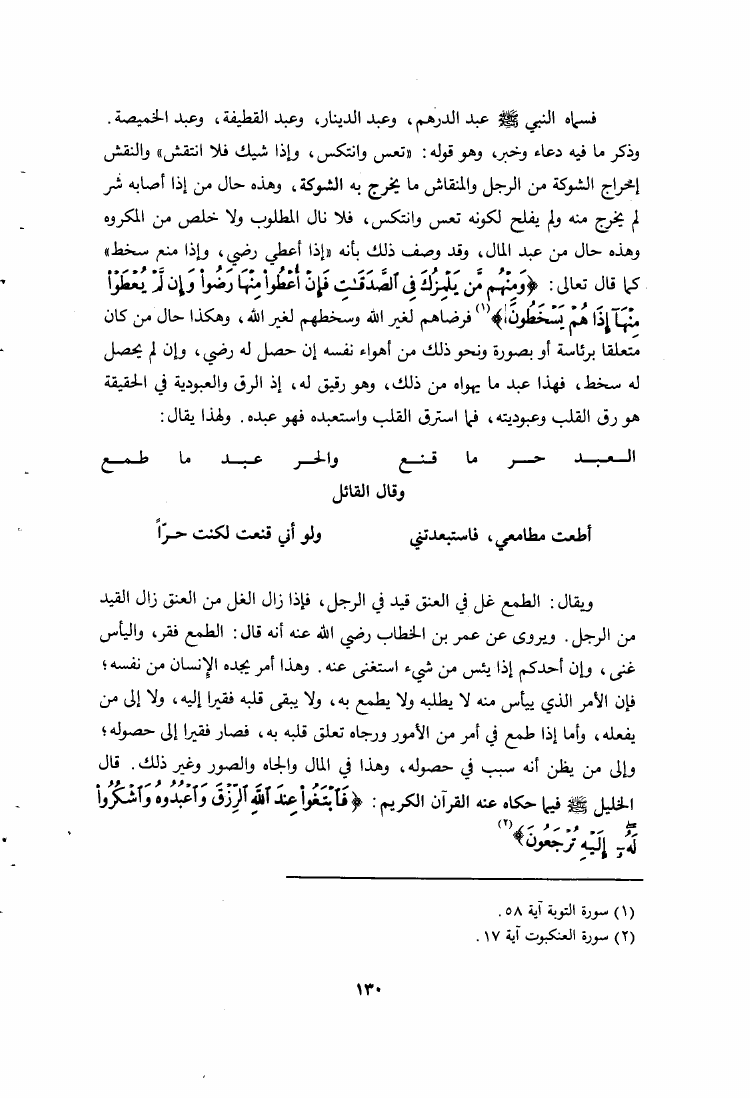 فسماه النبي ﷺ عبد الدرهم، وعبد الدينار، وعبد القطيفة، وعبد الخميصة.
وذكر ما فيه دعاء وخبر، وهو قوله: «تعس وانتكس، وإذا شيك فلا انتقش» والنقش
إخراج الشوكة من الرجل والمنقاش ما يخرج به الشوكة، وهذه حال من إذا أصابه شر
لم يخرج منه ولم يفلح لكونه تعس وانتكس، فلا نال المطلوب ولا خلص من المكروه
وهذه حال من عبد المال، وقد وصف ذلك بأنه «إذا أعطي رضي، وإذا منع سخط»
كما قال تعالى: ﴿وَمِنْهُم مَّن يَلْمِزُكَ فِي ٱلصَّدَقَٰتِ فَإِنْ أُعْطُوا۟ مِنْهَا رَضُوا۟ وَإِن لَّمْ يُعْطَوْا۟
مِنْهَآ إِذَا هُمْ يَسْخَطُونَ﴾(١) فرضاهم لغير الله وسخطهم لغير الله، وهكذا حال من كان
متعلقا برئاسة أو بصورة ونحو ذلك من أهواء نفسه إن حصل له رضي، وإن لم يحصل
له سخط، فهذا عبد ما يهواه من ذلك، وهو رقيق له، إذ الرق والعبودية في الحقيقة
هو رق القلب وعبوديته، فما استرق القلب واستعبده فهو عبده. ولهذا يقال:
الـعـبـد حـر ما قـنـع والحـر عـبـد ما طـمـع
وقال القائل
أطعت مطامعي، فاستبعدتني ولو أني قنعت لكنت حـرّاً
ويقال: الطمع غل في العنق قيد في الرجل، فإذا زال الغل من العنق زال القيد
من الرجل. ويروى عن عمر بن الخطاب رضي الله عنه أنه قال: الطمع فقر، واليأس
غنى، وإن أحدكم إذا يئس من شيء استغنى عنه. وهذا أمر يجده الإنسان من نفسه؛
فإن الأمر الذي ييأس منه لا يطلبه ولا يطمع به، ولا يبقى قلبه فقيرا إليه، ولا إلى من
يفعله، وأما إذا طمع في أمر من الأمور ورجاه تعلق قلبه به، فصار فقيرا إلى حصوله؛
وإلى من يظن أنه سبب في حصوله، وهذا في المال والجاه والصور وغير ذلك. قال
الخليل ﷺ فيما حكاه عنه القرآن الكريم: ﴿فَٱبْتَغُوا۟ عِندَ ٱللَّهِ ٱلرِّزْقَ وَٱعْبُدُوهُ وَٱشْكُرُوا۟
لَهُۥٓ إِلَيْهِ تُرْجَعُونَ﴾(٢)
(١) سورة التوبة آية ٥٨.
(٢) سورة العنكبوت آية ١٧.
١٣٠